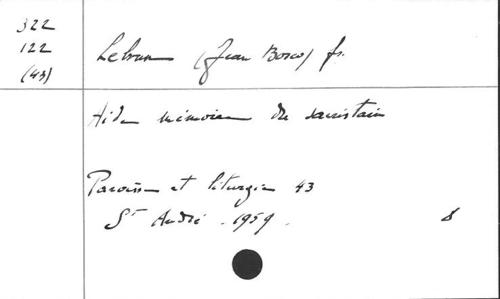 322
122
(43)
Lebrun (Jean Bosco) fr.
Aide mémoire du sacristain
Paroisse et liturgie 43
St André - 1959.
8